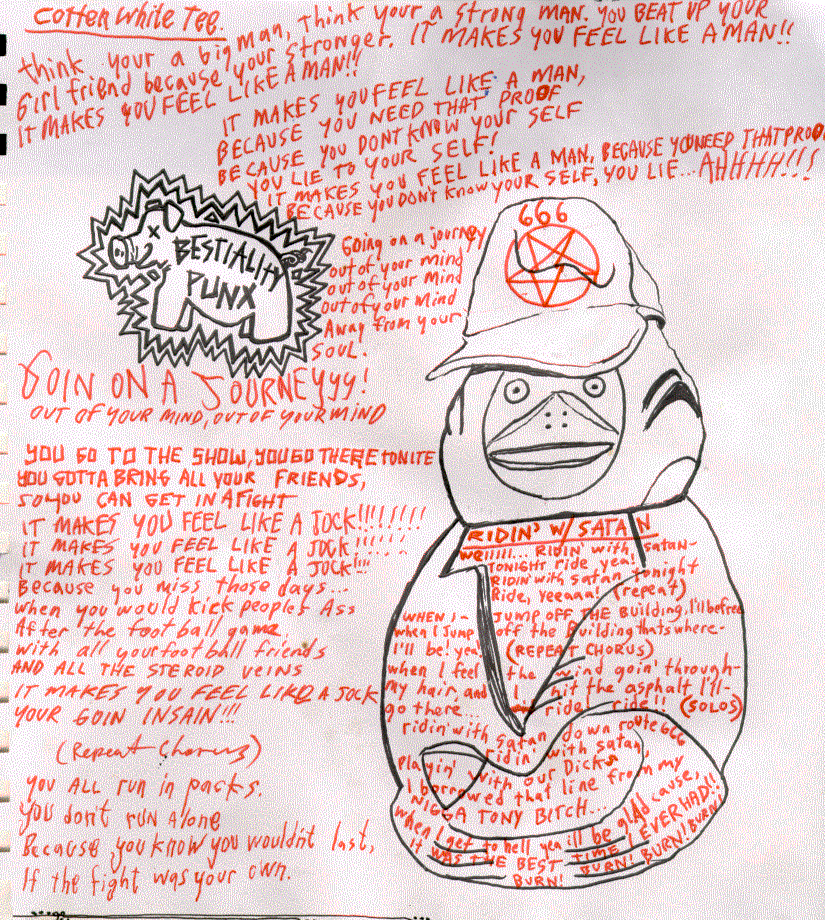 Cotten White Tee.
think your a big man, think your a strong man. you beat up your
girlfriend because your stronger. IT MAKES YOU FEEL LIKE A MAN!!
IT MAKES YOU FEEL LIKE A MAN!!
IT MAKES YOU FEEL LIKE A MAN,
BECAUSE YOU NEED THAT PROOF
BECAUSE YOU DONT KNOW YOUR SELF
YOU LIE TO YOUR SELF!
IT MAKES YOU FEEL LIKE A MAN, BECAUSE YOU NEED THAT PROOF
BECAUSE YOU DON'T KNOW YOUR SELF, YOU LIE... AHHHH!!!
BESTIALITY
PUNX
Going on a journey
out of your mind
out of your mind
out of your mind
Away from your
SOUL.
GOIN ON A JOURNEYYY!
OUT OF YOUR MIND, OUT OF YOUR MIND
YOU GO TO THE SHOW, YOU GO THERE TONITE
YOU GOTTA BRING ALL YOUR FRIENDS,
SO YOU CAN GET IN A FIGHT
IT MAKES YOU FEEL LIKE A JOCK!!!!!!!!
IT MAKES YOU FEEL LIKE A JOCK!!!!!!
IT MAKES YOU FEEL LIKE A JOCK!!!
Because you miss those days...
when you would kick peoples Ass
After the football game
with all your football friends
AND ALL THE STEROID VEINS
IT MAKES YOU FEEL LIKE A JOCK
YOUR GOIN INSAIN!!!
(Repeat Chorus)
you ALL run in packs.
you don't RUN Alone
Because you know you wouldn't last,
If the fight was your own.
666
RIDIN' W/ SATAN
Wellllll... RIDIN' with satan-
TONIGHT ride yea!
RIDIN' with satan tonight
Ride, yeeaaa! (repeat)
WHEN I - JUMP OFF THE BUILDING, I'll be free
when I Jump off the Building thats where-
I'll be! yea! (REPEAT CHORUS)
when I feel the wind goin' through-
my hair, and I hit the asphalt I'll-
go there... ride! ride!! (SOLOS)
ridin' with satan down route 666
ridin' with satan,
playin' with our Dicks
I borrowed that line from my
NIGGA TONY BITCH...
When I get to hell yea ill be glad cause,
IT WAS THE BEST TIME I EVER HAD!!
BURN! BURN! BURN! BURN!